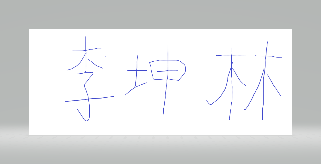 李坤林